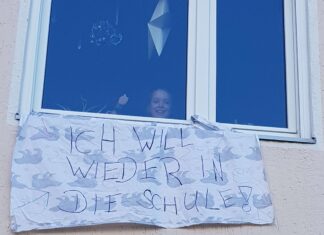 ICH WILL
WIEDER IN
DIE SCHULE!